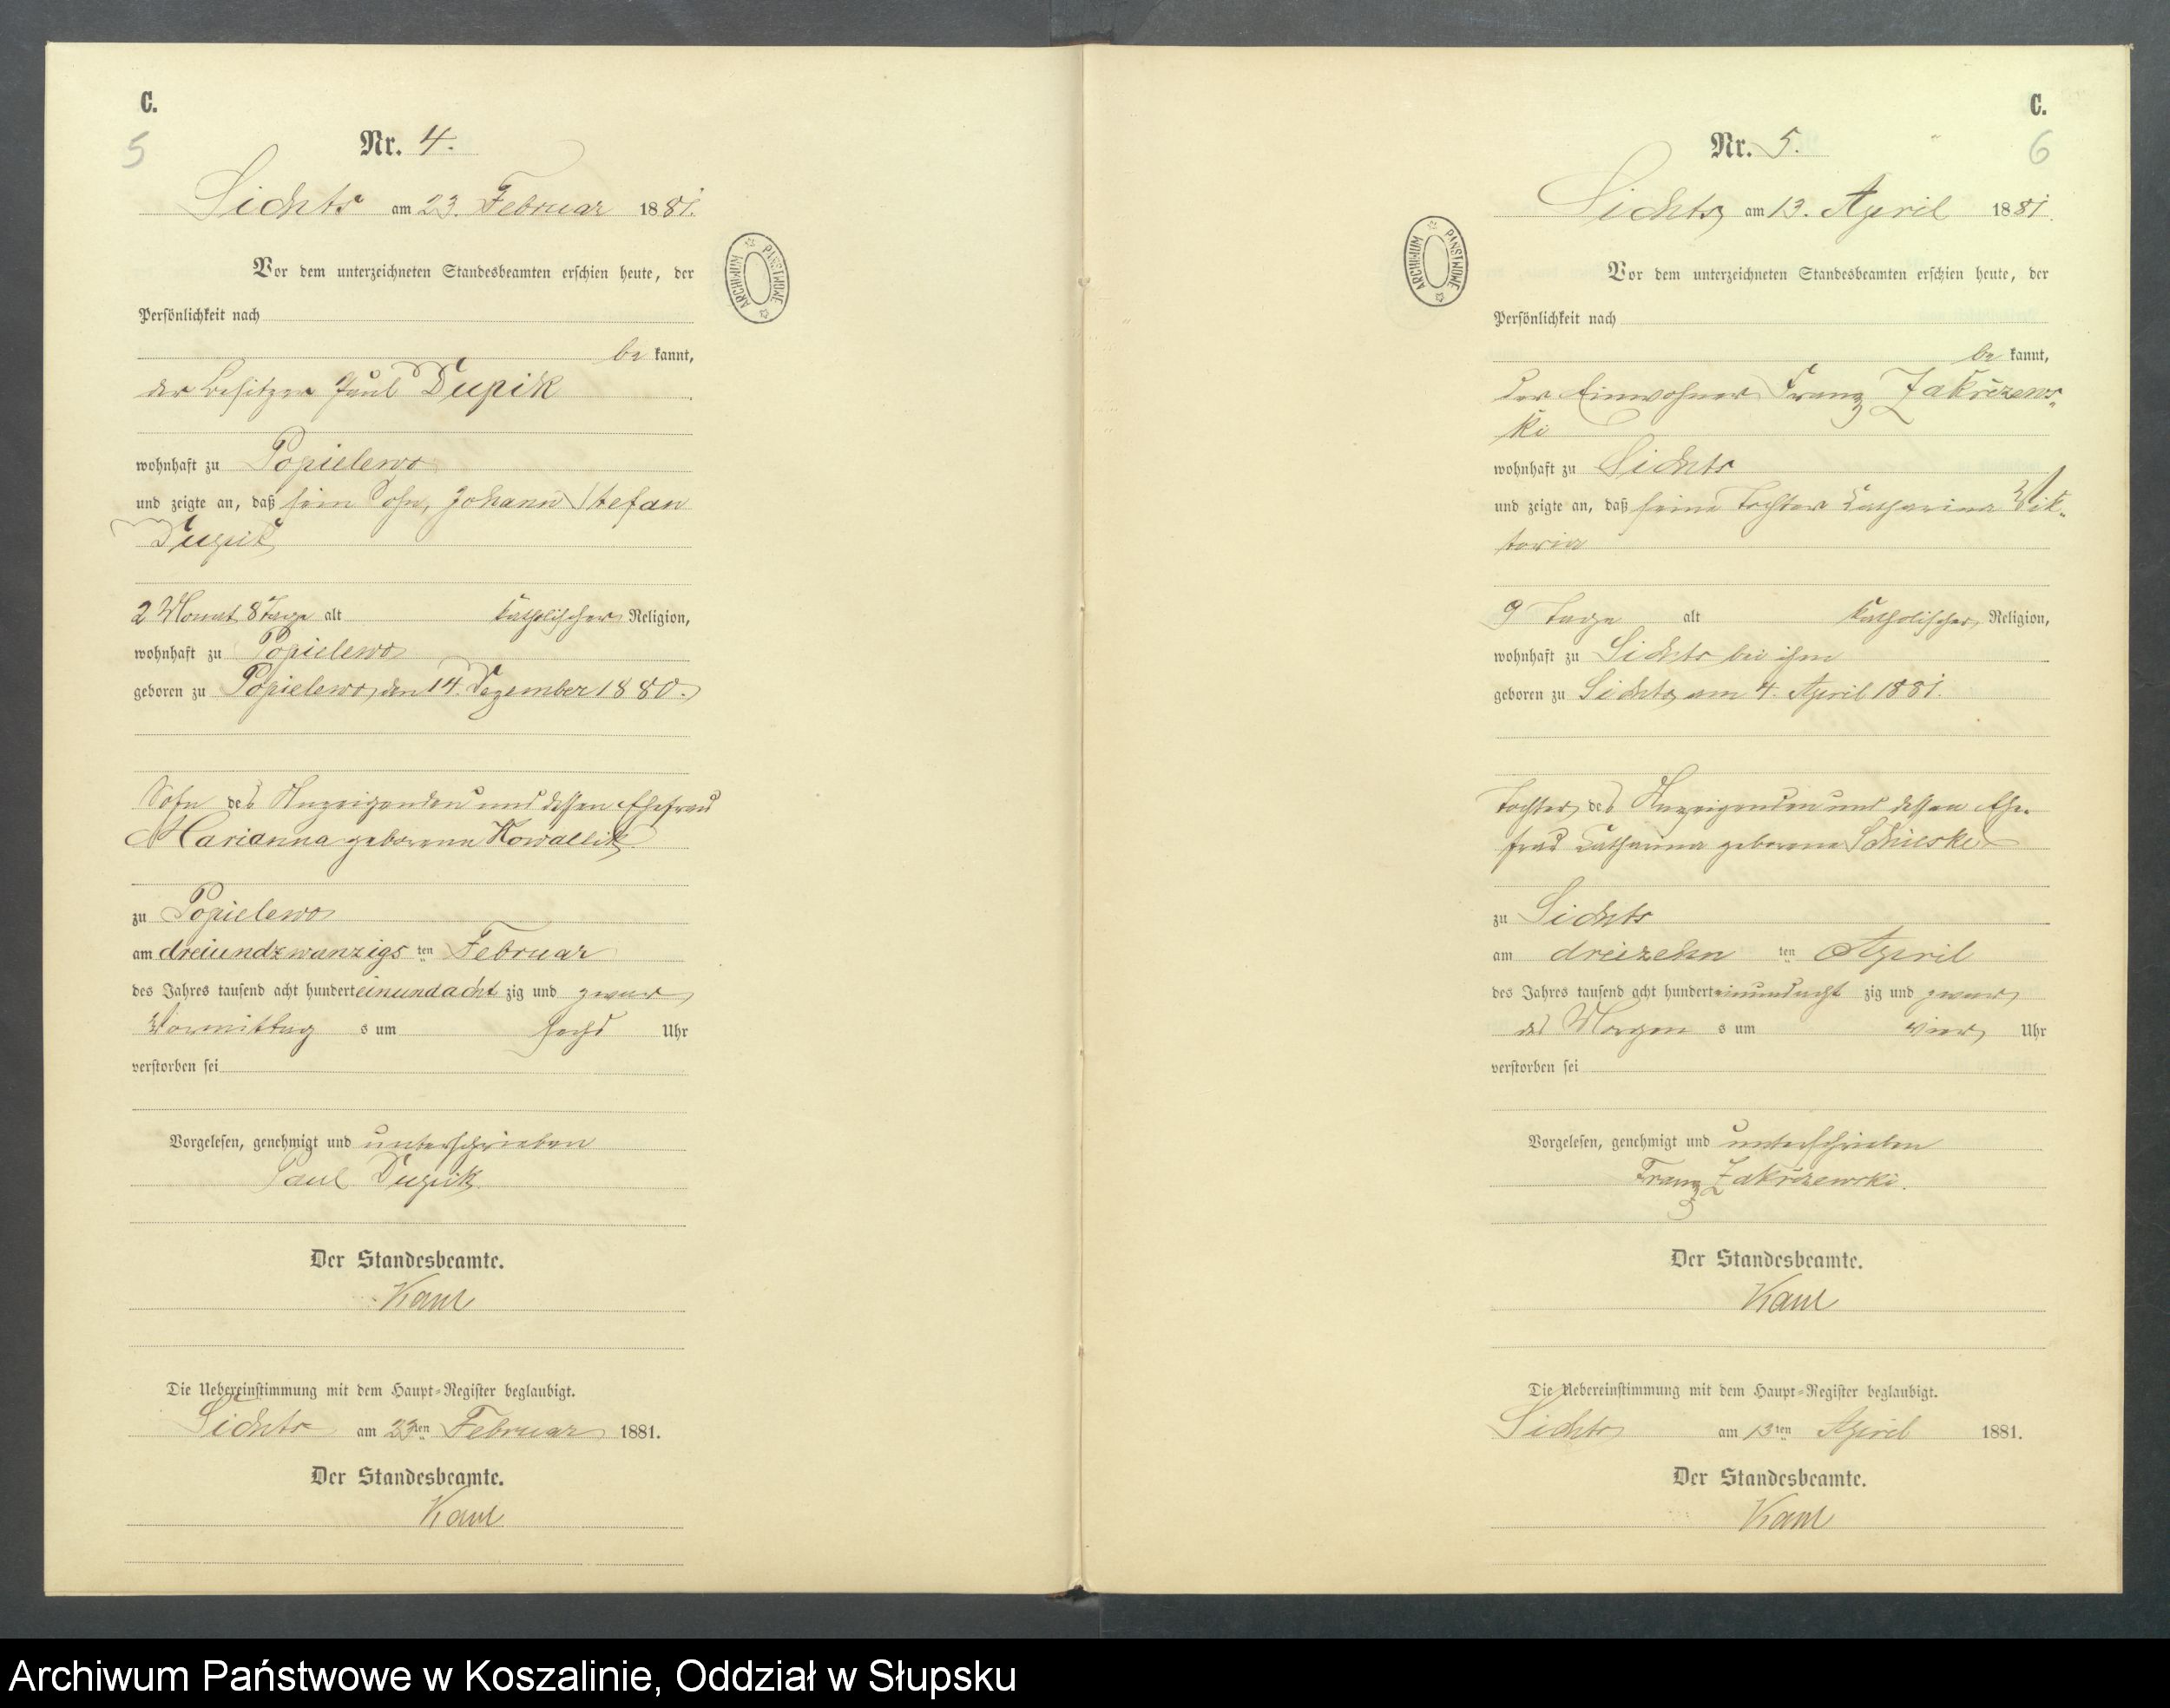 C.
5
Nr. 4.
Sichts am 23. Februar 1881.
Vor dem unterzeichneten Standesbeamten erschien heute, der
Persönlichkeit nach
be kannt,
der Besitzer Paul Dupik
wohnhaft zu Popielewo
und zeigte an, daß sein Sohn, Johann Stefan
Dupik
2 Monat 8 Tage alt katholischer Religion,
wohnhaft zu Popielewo
geboren zu Popielewo, den 14. Dezember 1880.
Sohn des Anzeigenden und dessen Ehefrau
Marianna geborene Kowallik
zu Popielewo
am dreiundzwanzigs ten Februar
des Jahres tausend acht hundert einundacht zig und zwar
Vormittag s um sechs Uhr
verstorben sei
Vorgelesen, genehmigt und unterschrieben
Paul Dupik
Der Standesbeamte.
Kaul
Die Uebereinstimmung mit dem Haupt-Register beglaubigt.
Sichts am 23ten Februar 1881.
Der Standesbeamte.
Kaul
ARCHIWUM PAŃSTWOWE
C.
6
Nr. 5.
Sichts, am 13. April 1881
Vor dem unterzeichneten Standesbeamten erschien heute, der
Persönlichkeit nach
be kannt,
der Einwohner Franz Zakrzews-
ki
wohnhaft zu Sichts
und zeigte an, daß seine Tochter Catharina Vik-
toria
9 Tage alt katholischer Religion,
wohnhaft zu Sichts bei ihm
geboren zu Sichts, am 4. April 1881.
Tochter des Anzeigenden und dessen Ehe-
frau Catharina geborene
zu Sichts
am dreizehn ten April
des Jahres tausend acht hundert einundacht zig und zwar
des Morgen s um vier Uhr
verstorben sei
Vorgelesen, genehmigt und unterschrieben
Franz Zakrzewski.
Der Standesbeamte.
Kaul
Die Uebereinstimmung mit dem Haupt-Register beglaubigt.
Sichts am 13ten April 1881.
Der Standesbeamte.
Kaul
ARCHIWUM PAŃSTWOWE
Archiwum Państwowe w Koszalinie, Oddział w Słupsku